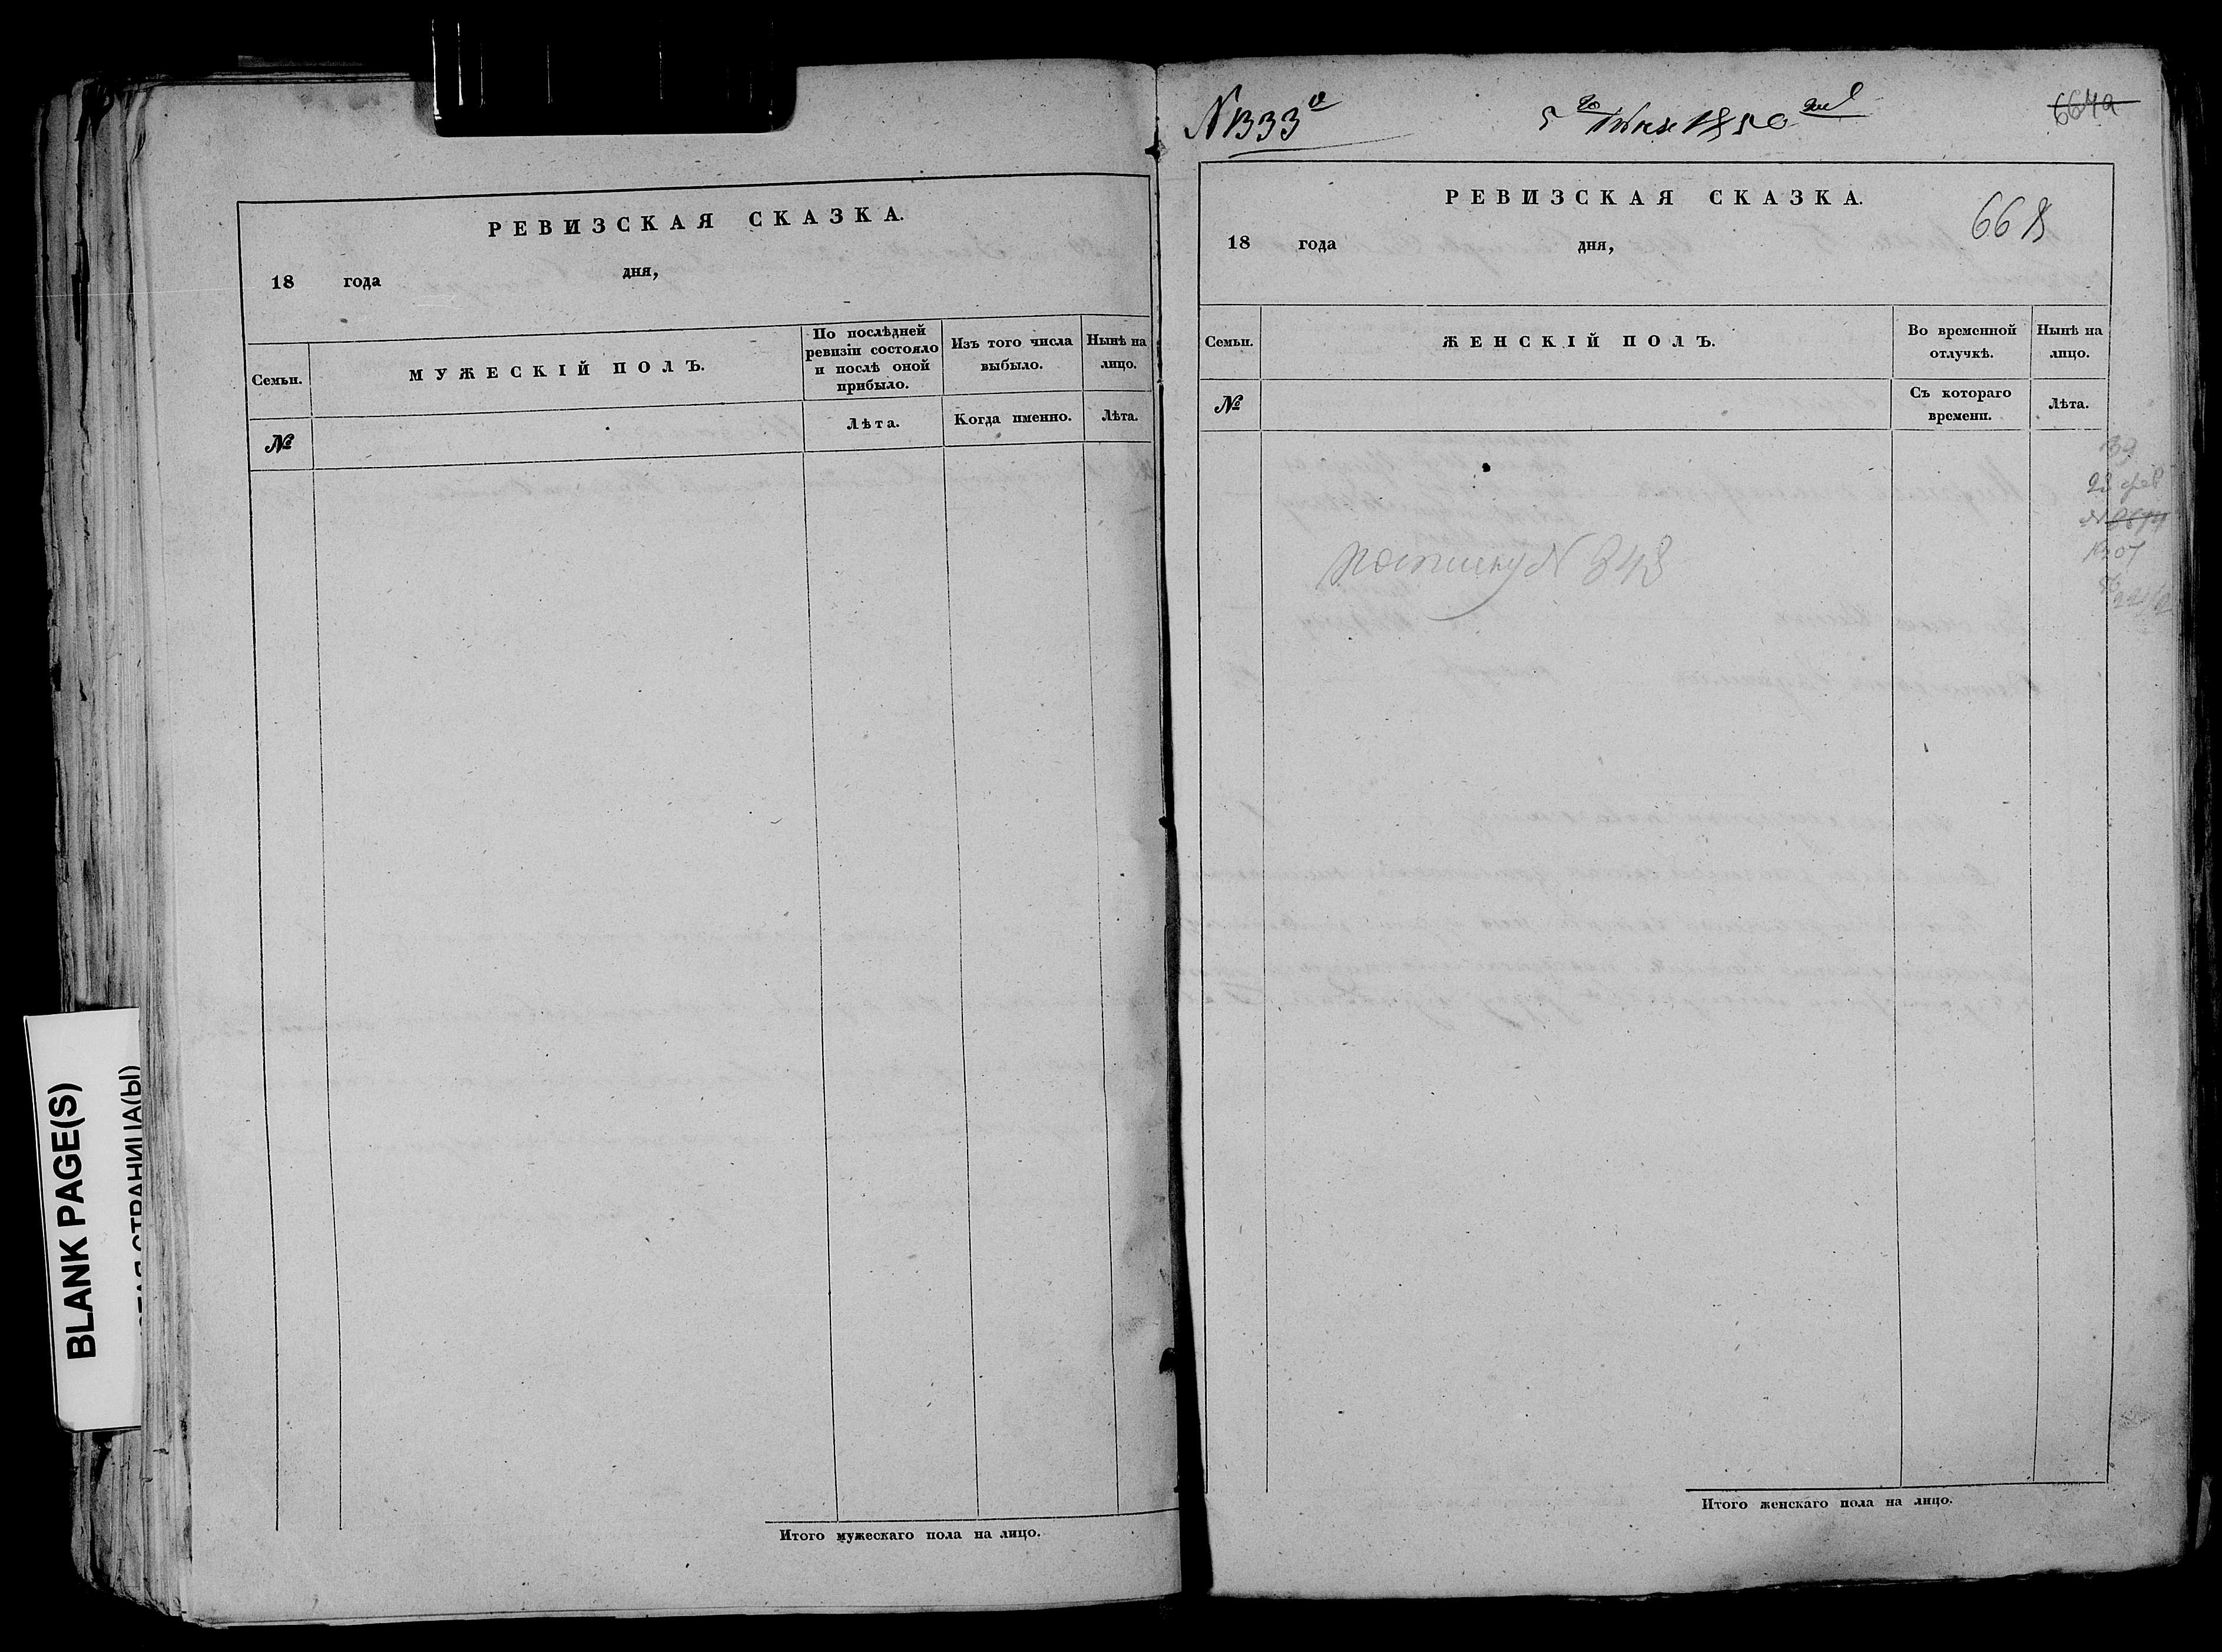 BLANK PAGE(S)
СТРАНИЦА(Ы)
РЕВИЗСКАЯ СКАЗКА.
18 года дня,
Семьи.
МУЖЕСКІЙ ПОЛЪ.
По послѣдней
ревизіи состояло
и послѣ оной
прибыло.
Изъ того числа
выбыло.
Нынѣ на
лицо.
№
Лѣта.
Когда именно.
Лѣта.
Итого мужескаго пола на лицо.
N 1333
5го 1850
664а
РЕВИЗСКАЯ СКАЗКА.
668
18 года дня,
Семьи.
ЖЕНСКІЙ ПОЛЪ.
Во временной
отлучкѣ.
Нынѣ на
лицо.
№
Съ котораго
времени.
Лѣта.
N 848
Итого женскаго пола на лицо.